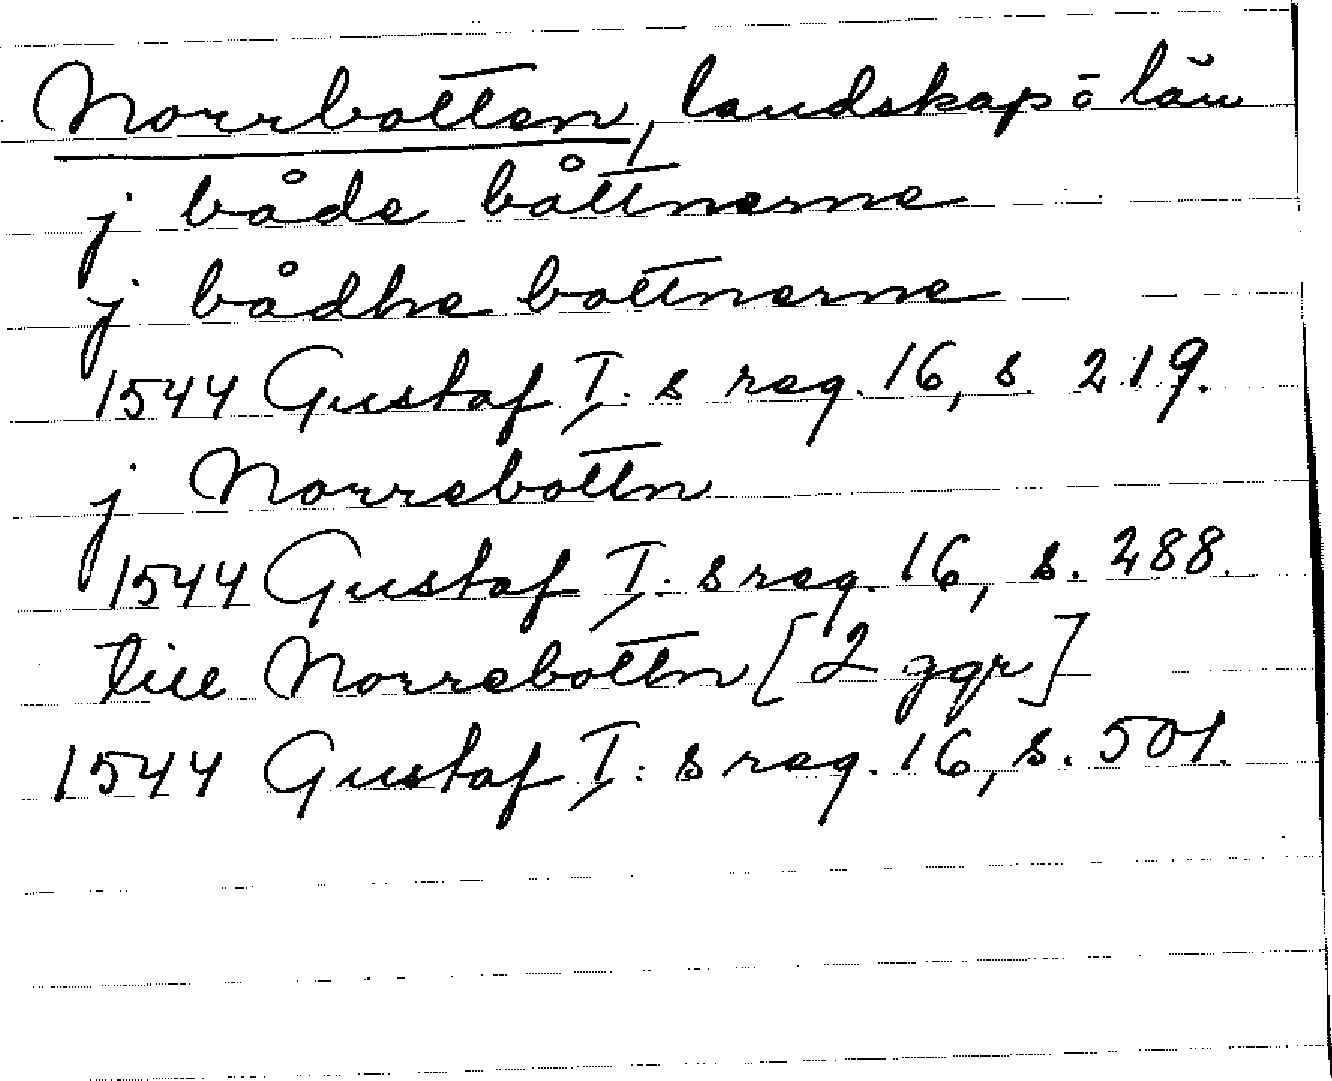 Norrbotten, landskap o län
j både båttnerne
j bådhe bottnerne
1544 Gustaf I:s reg. 16, s 219.
j Norrebottn
1544 Gustaf I:s reg. 16, s. 288.
till Norrebottn [2 ggr]
1544 Gustaf I:s reg. 16, s. 501.